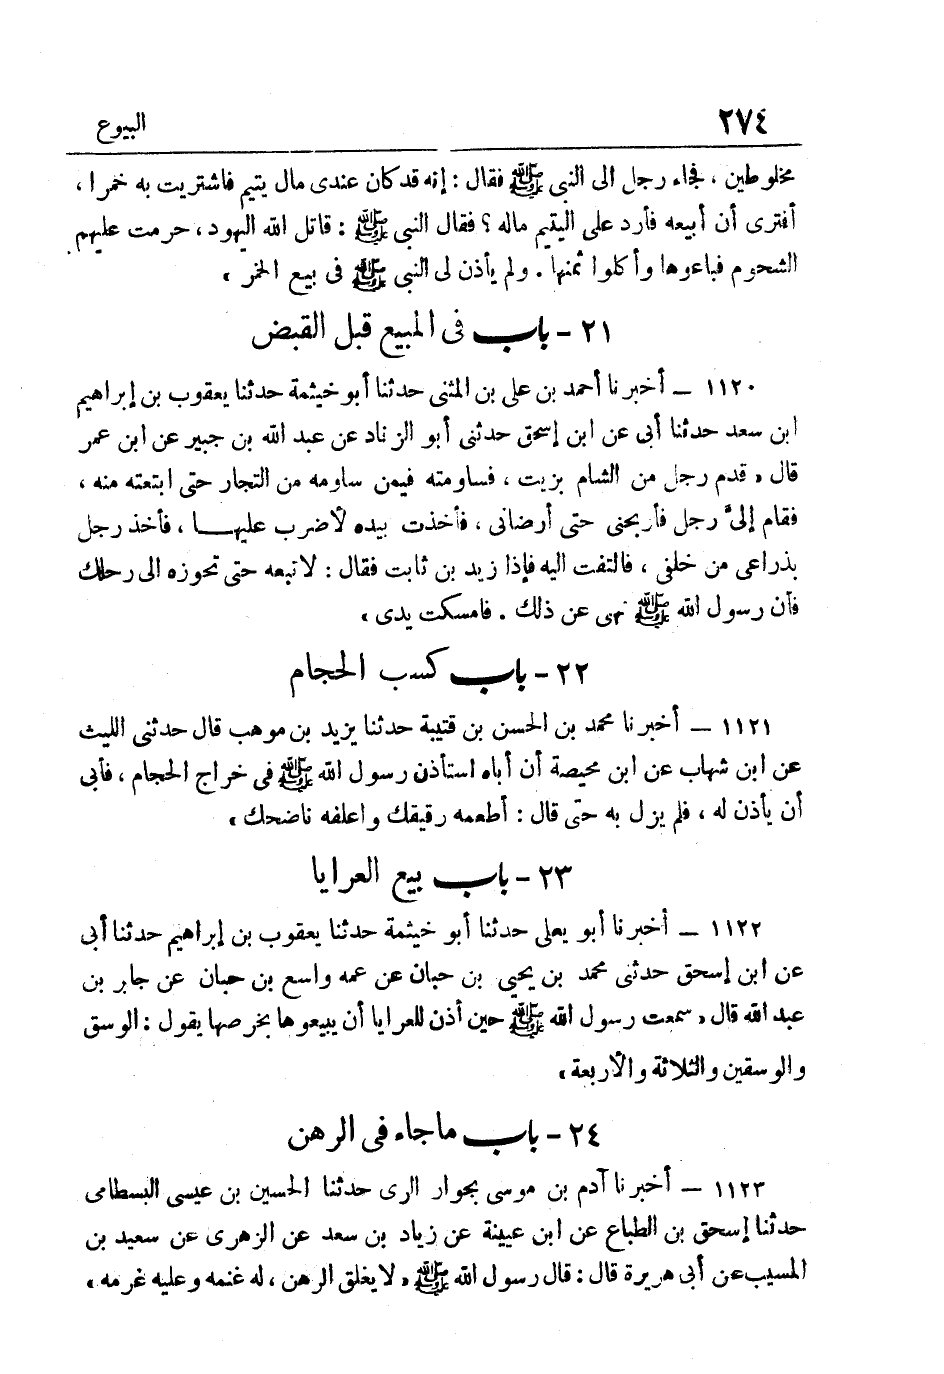 ٢٧٤
البيوع
مخلوطين ، فجاء رجل الى النبى ﷺ فقال : إنه قد كان عندى مال يتيم فاشتريت به خمرا ،
أفترى أن أبيعه فأرد على اليتيم ماله ؟ فقال النبى ﷺ : قاتل الله اليهود ، حرمت عليهم
الشحوم فباعوها وأكلوا ثمنها . ولم يأذن لى النبى ﷺ فى بيع الخمر ،
٢١ - باب فى المبيع قبل القبض
١١٢٠ – أخبرنا أحمد بن على بن المثنى حدثنا أبو خيثمة حدثنا يعقوب بن إبراهيم
ابن سعد حدثنا أبى عن ابن إسحق حدثنى أبو الزناد عن عبد الله بن جبير عن ابن عمر
قال « قدم رجل من الشام بزيت ، فساومته فيمن ساومه من التجار حتى ابتعته منه ،
فقام إلىَّ رجل فأربحنى حتى أرضانى ، فأخذت بيده لأضرب عليهــا ، فأخذ رجل
بذراعى من خلفى ، فالتفت اليه فإذا زيد بن ثابت فقال : لا تبعه حتى تحوزه الى رحلك
فأن رسول الله ﷺ نهى عن ذلك . فامسكت يدى »
٢٢ - باب كسب الحجام
١١٢١ – أخبرنا محمد بن الحسن بن قتيبة حدثنا يزيد بن موهب قال حدثنى الليث
عن ابن شهاب عن ابن محيصة أن أباه استأذن رسول الله ﷺ فى خراج الحجام ، فأبى
أن يأذن له ، فلم يزل به حتى قال : أطعمه رقيقك واعلفه ناضحك »
٢٣ - باب بيع العرايا
١١٢٢ – أخبرنا أبو يعلى حدثنا أبو خيثمة حدثنا يعقوب بن إبراهيم حدثنا أبى
عن ابن إسحق حدثنى محمد بن يحيى بن حبان عن عمه واسع بن حبان عن جابر بن
عبد الله قال « سمعت رسول الله ﷺ حين أذن للعرايا أن يبيعوها بخرصها يقول : الوسق
والوسقين والثلاثة والأربعة »
٢٤ - باب ماجاء فى الرهن
١١٢٣ – أخبرنا آدم بن موسى بجوار الرى حدثنا الحسين بن عيسى البسطامى
حدثنا إسحق بن الطباع عن ابن عيينة عن زياد بن سعد عن الزهرى عن سعيد بن
المسيب عن أبى هريرة قال : قال رسول الله ﷺ « لا يغلق الرهن ، له غنمه وعليه غرمه »